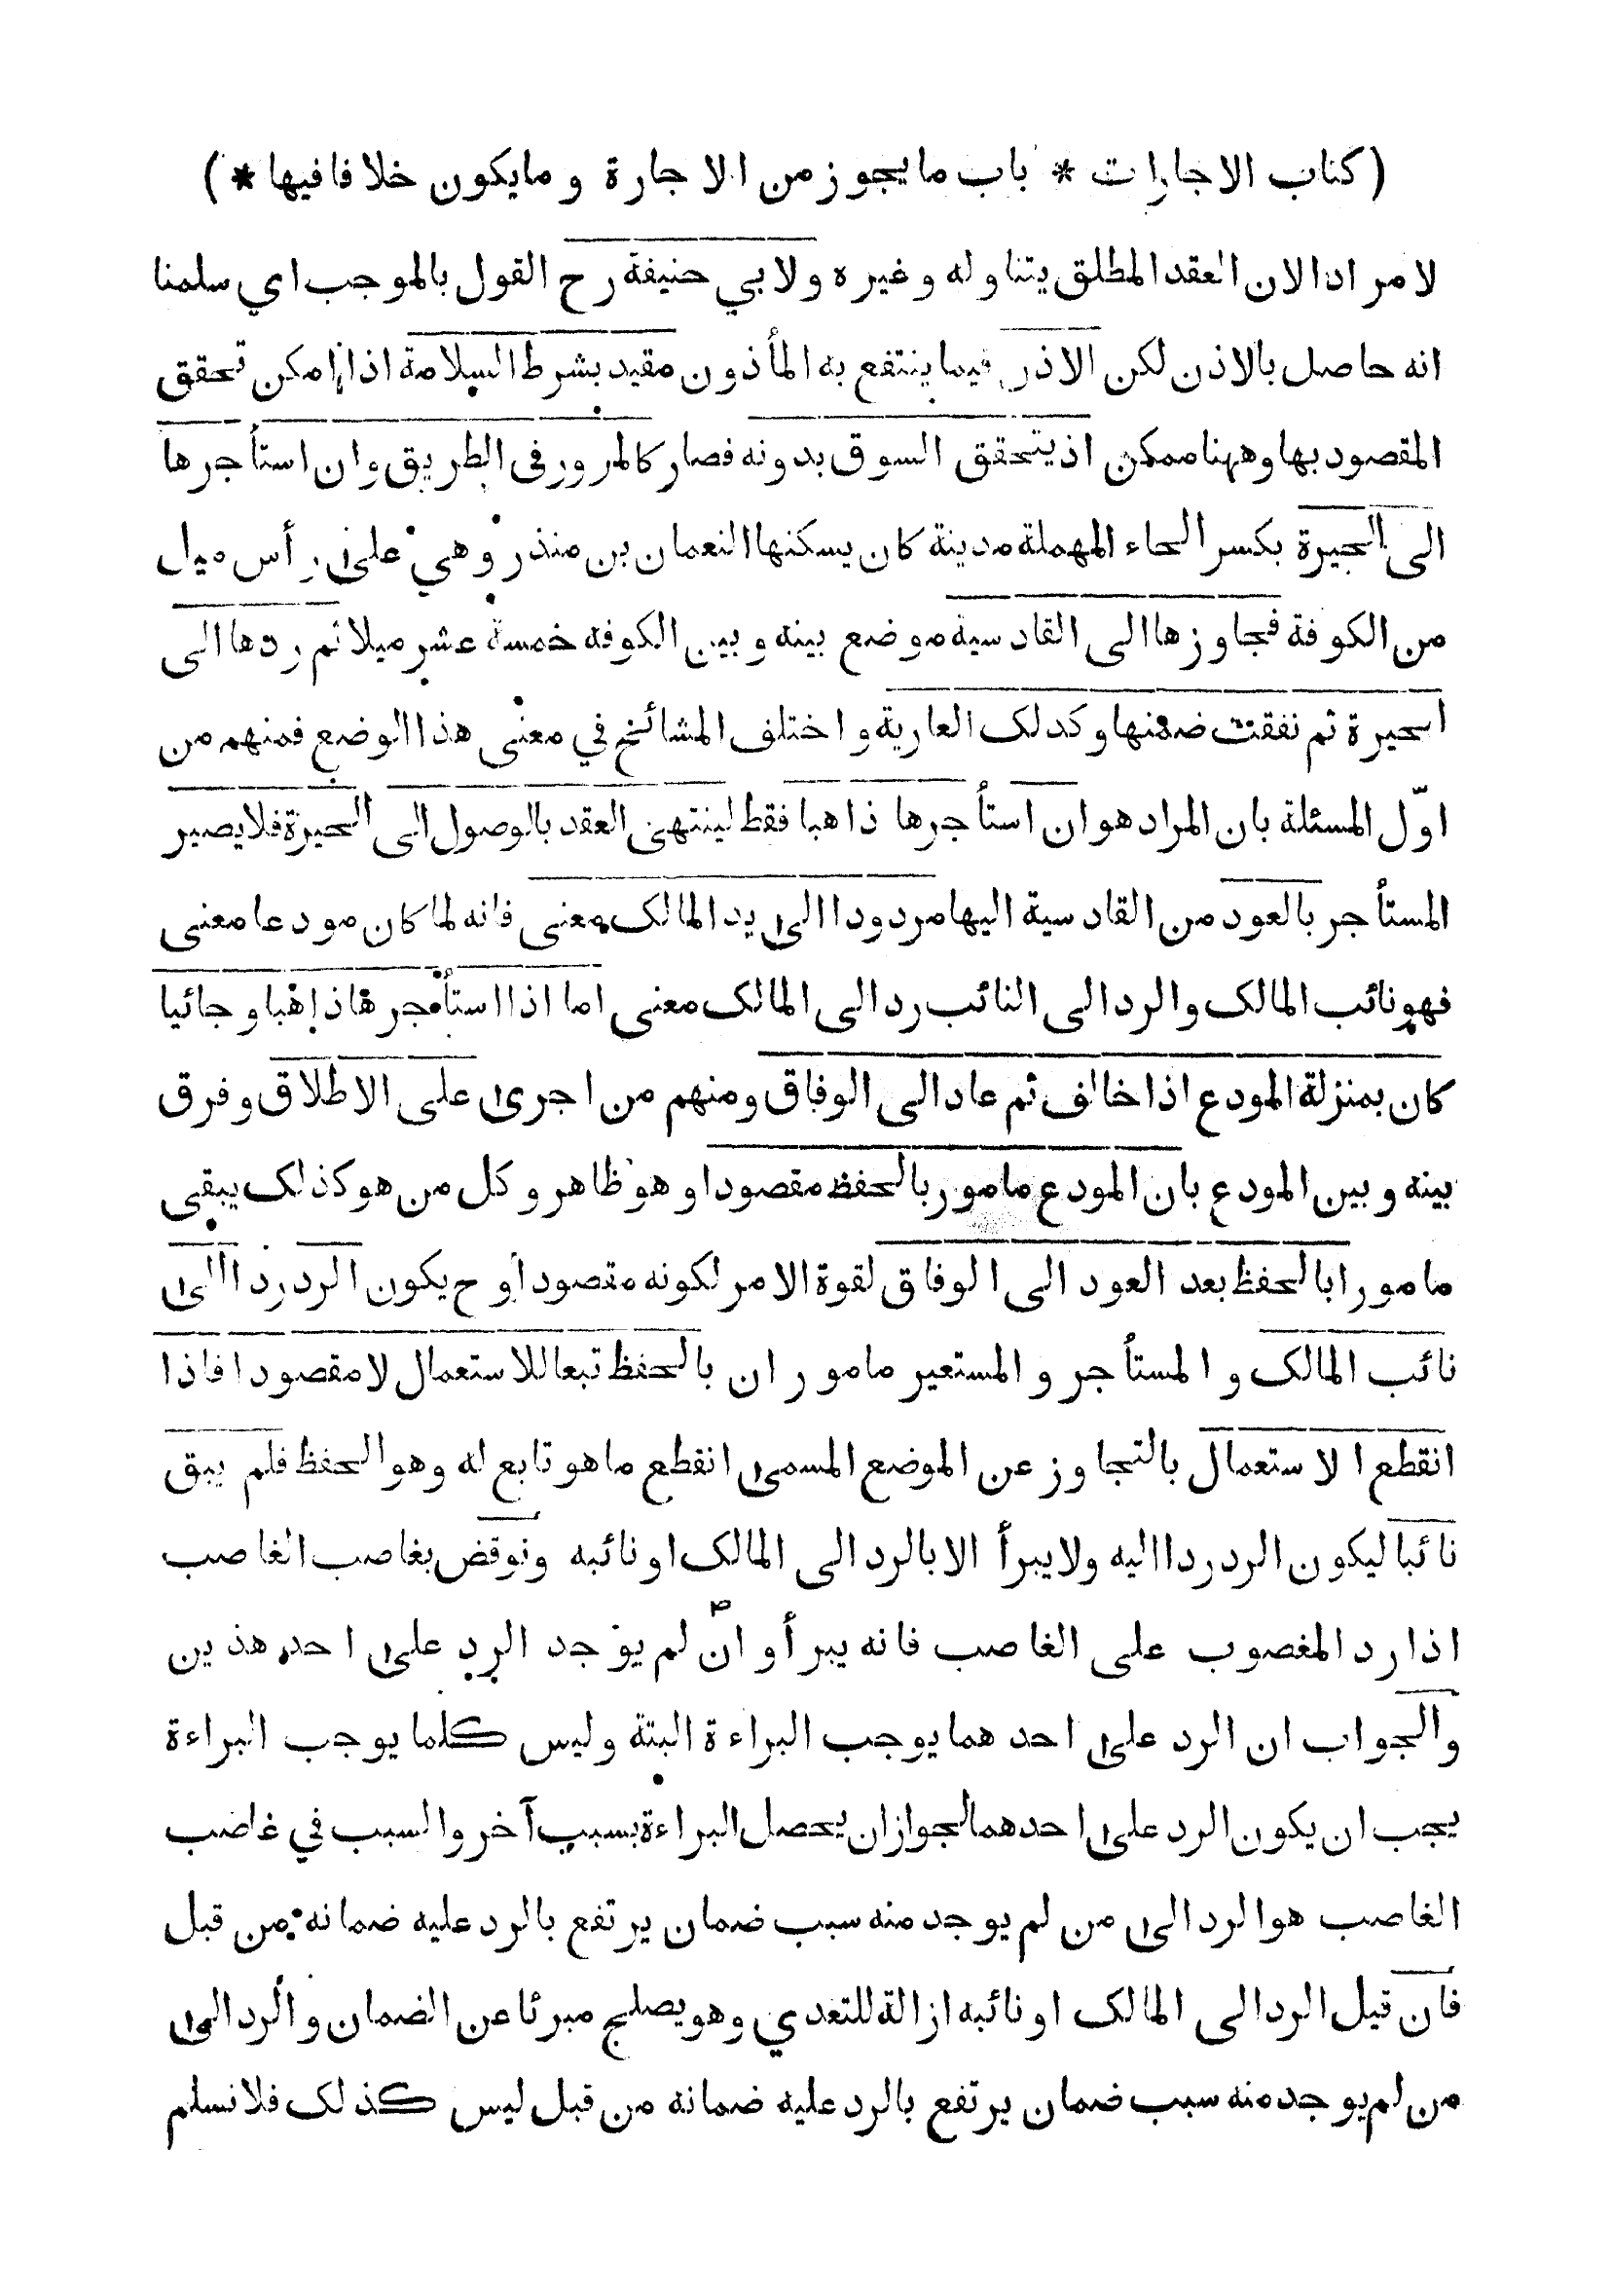 (كتاب الاجارات * باب ما يجوز من الاجارة وما يكون خلافا فيها *)
لا مرادا لان العقد المطلق يتناوله وغيره ولابي حنيفة رح القول بالموجب اي سلمنا
انه حاصل بالاذن لكن الاذن فيما ينتفع به المأذون مقيد بشرط السلامة اذا امكن تحقق
المقصود بها وههنا ممكن اذ يتحقق السوق بدونه فصار كالمرور في الطريق وان استأجرها
الى الحيرة بكسر الحاء المهملة مدينة كان يسكنها النعمان بن منذر وهي على رأس ميل
من الكوفة فجاوزها الى القادسية موضع بينه وبين الكوفه خمسة عشر ميلا ثم ردها الى
الحيرة ثم نفقت ضمنها وكذلك العارية واختلف المشائخ في معنى هذا الوضع فمنهم من
اوّل المسئلة بان المراد هو ان استأجرها ذاهبا فقط لينتهي العقد بالوصول الى الحيرة فلا يصير
المستأجر بالعود من القادسية اليها مردودا الى يد المالك معنى فانه لما كان مودعا معنى
فهو نائب المالك والرد الى النائب رد الى المالك معنى اما اذا استأجرها ذاهبا وجائيا
كان بمنزلة المودع اذا خالف ثم عاد الى الوفاق ومنهم من اجرى على الاطلاق وفرق
بينه وبين المودع بان المودع مامور بالحفظ مقصودا وهو ظاهر وكل من هو كذلك يبقى
مامورا بالحفظ بعد العود الى الوفاق لقوة الامر لكونه مقصودا وح يكون الرد ردا الى
نائب المالك والمستأجر والمستعير ماموران بالحفظ تبعا للاستعمال لا مقصودا فاذا
انقطع الاستعمال بالتجاوز عن الموضع المسمى انقطع ما هو تابع له وهو الحفظ فلم يبق
نائبا ليكون الرد ردا اليه ولا يبرأ الا بالرد الى المالك او نائبه ونوقض بغاصب الغاصب
اذا رد المغصوب على الغاصب فانه يبرأ وان لم يوجد الرد على احد هذين
والجواب ان الرد على احدهما يوجب البراءة البتة وليس كلما يوجب البراءة
يجب ان يكون الرد على احدهما لجواز ان يحصل البراءة بسبب آخر والسبب في غاصب
الغاصب هو الرد الى من لم يوجد منه سبب ضمان يرتفع بالرد عليه ضمانه من قبل
فان قيل الرد الى المالك او نائبه ازالة للتعدي وهو يصلح مبرئا عن الضمان والرد الى
من لم يوجد منه سبب ضمان يرتفع بالرد عليه ضمانه من قبل ليس كذلك فلا نسلم